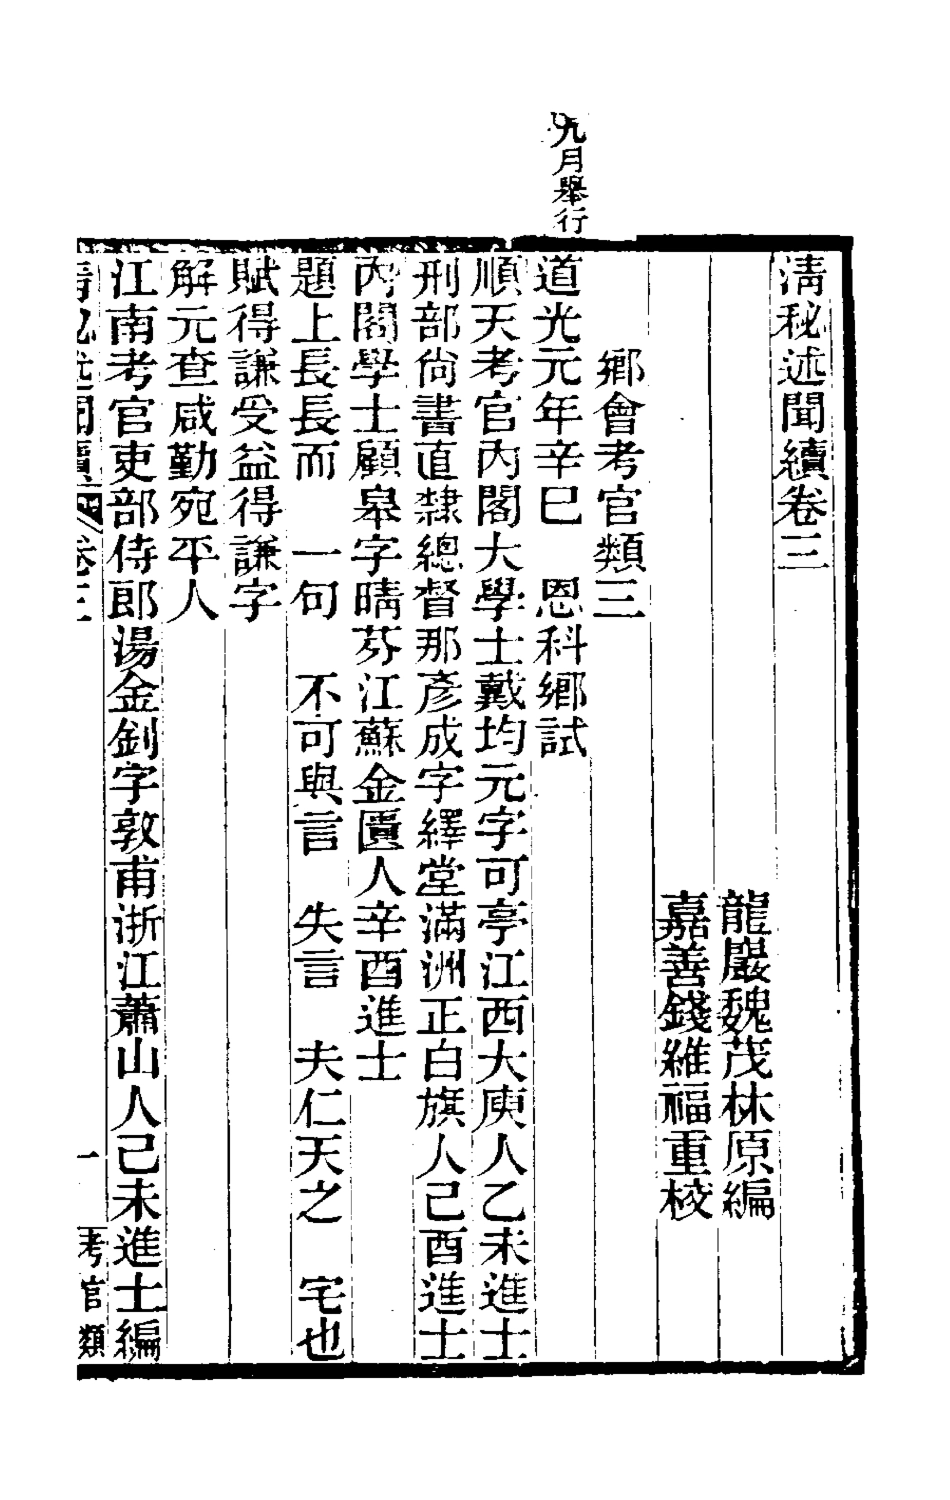 清秘述聞續卷三
龍巖魏茂林原編
嘉善錢維福重校
鄉會考官類三
九月舉行
道光元年辛巳　恩科鄉試
順天考官內閣大學士戴均元字可亭江西大庾人乙未進士
刑部尙書直隸總督那彥成字繹堂滿洲正白旗人己酉進士
內閣學士顧皋字晴芬江蘇金匱人辛酉進士
題上長長而　一句　不可與言　失言　夫仁天之　宅也
賦得謙受益得謙字
解元查咸勤宛平人
江南考官吏部侍郎湯金釗字敦甫浙江蕭山人己未進士編
清秘述聞續　卷三　一　考官類